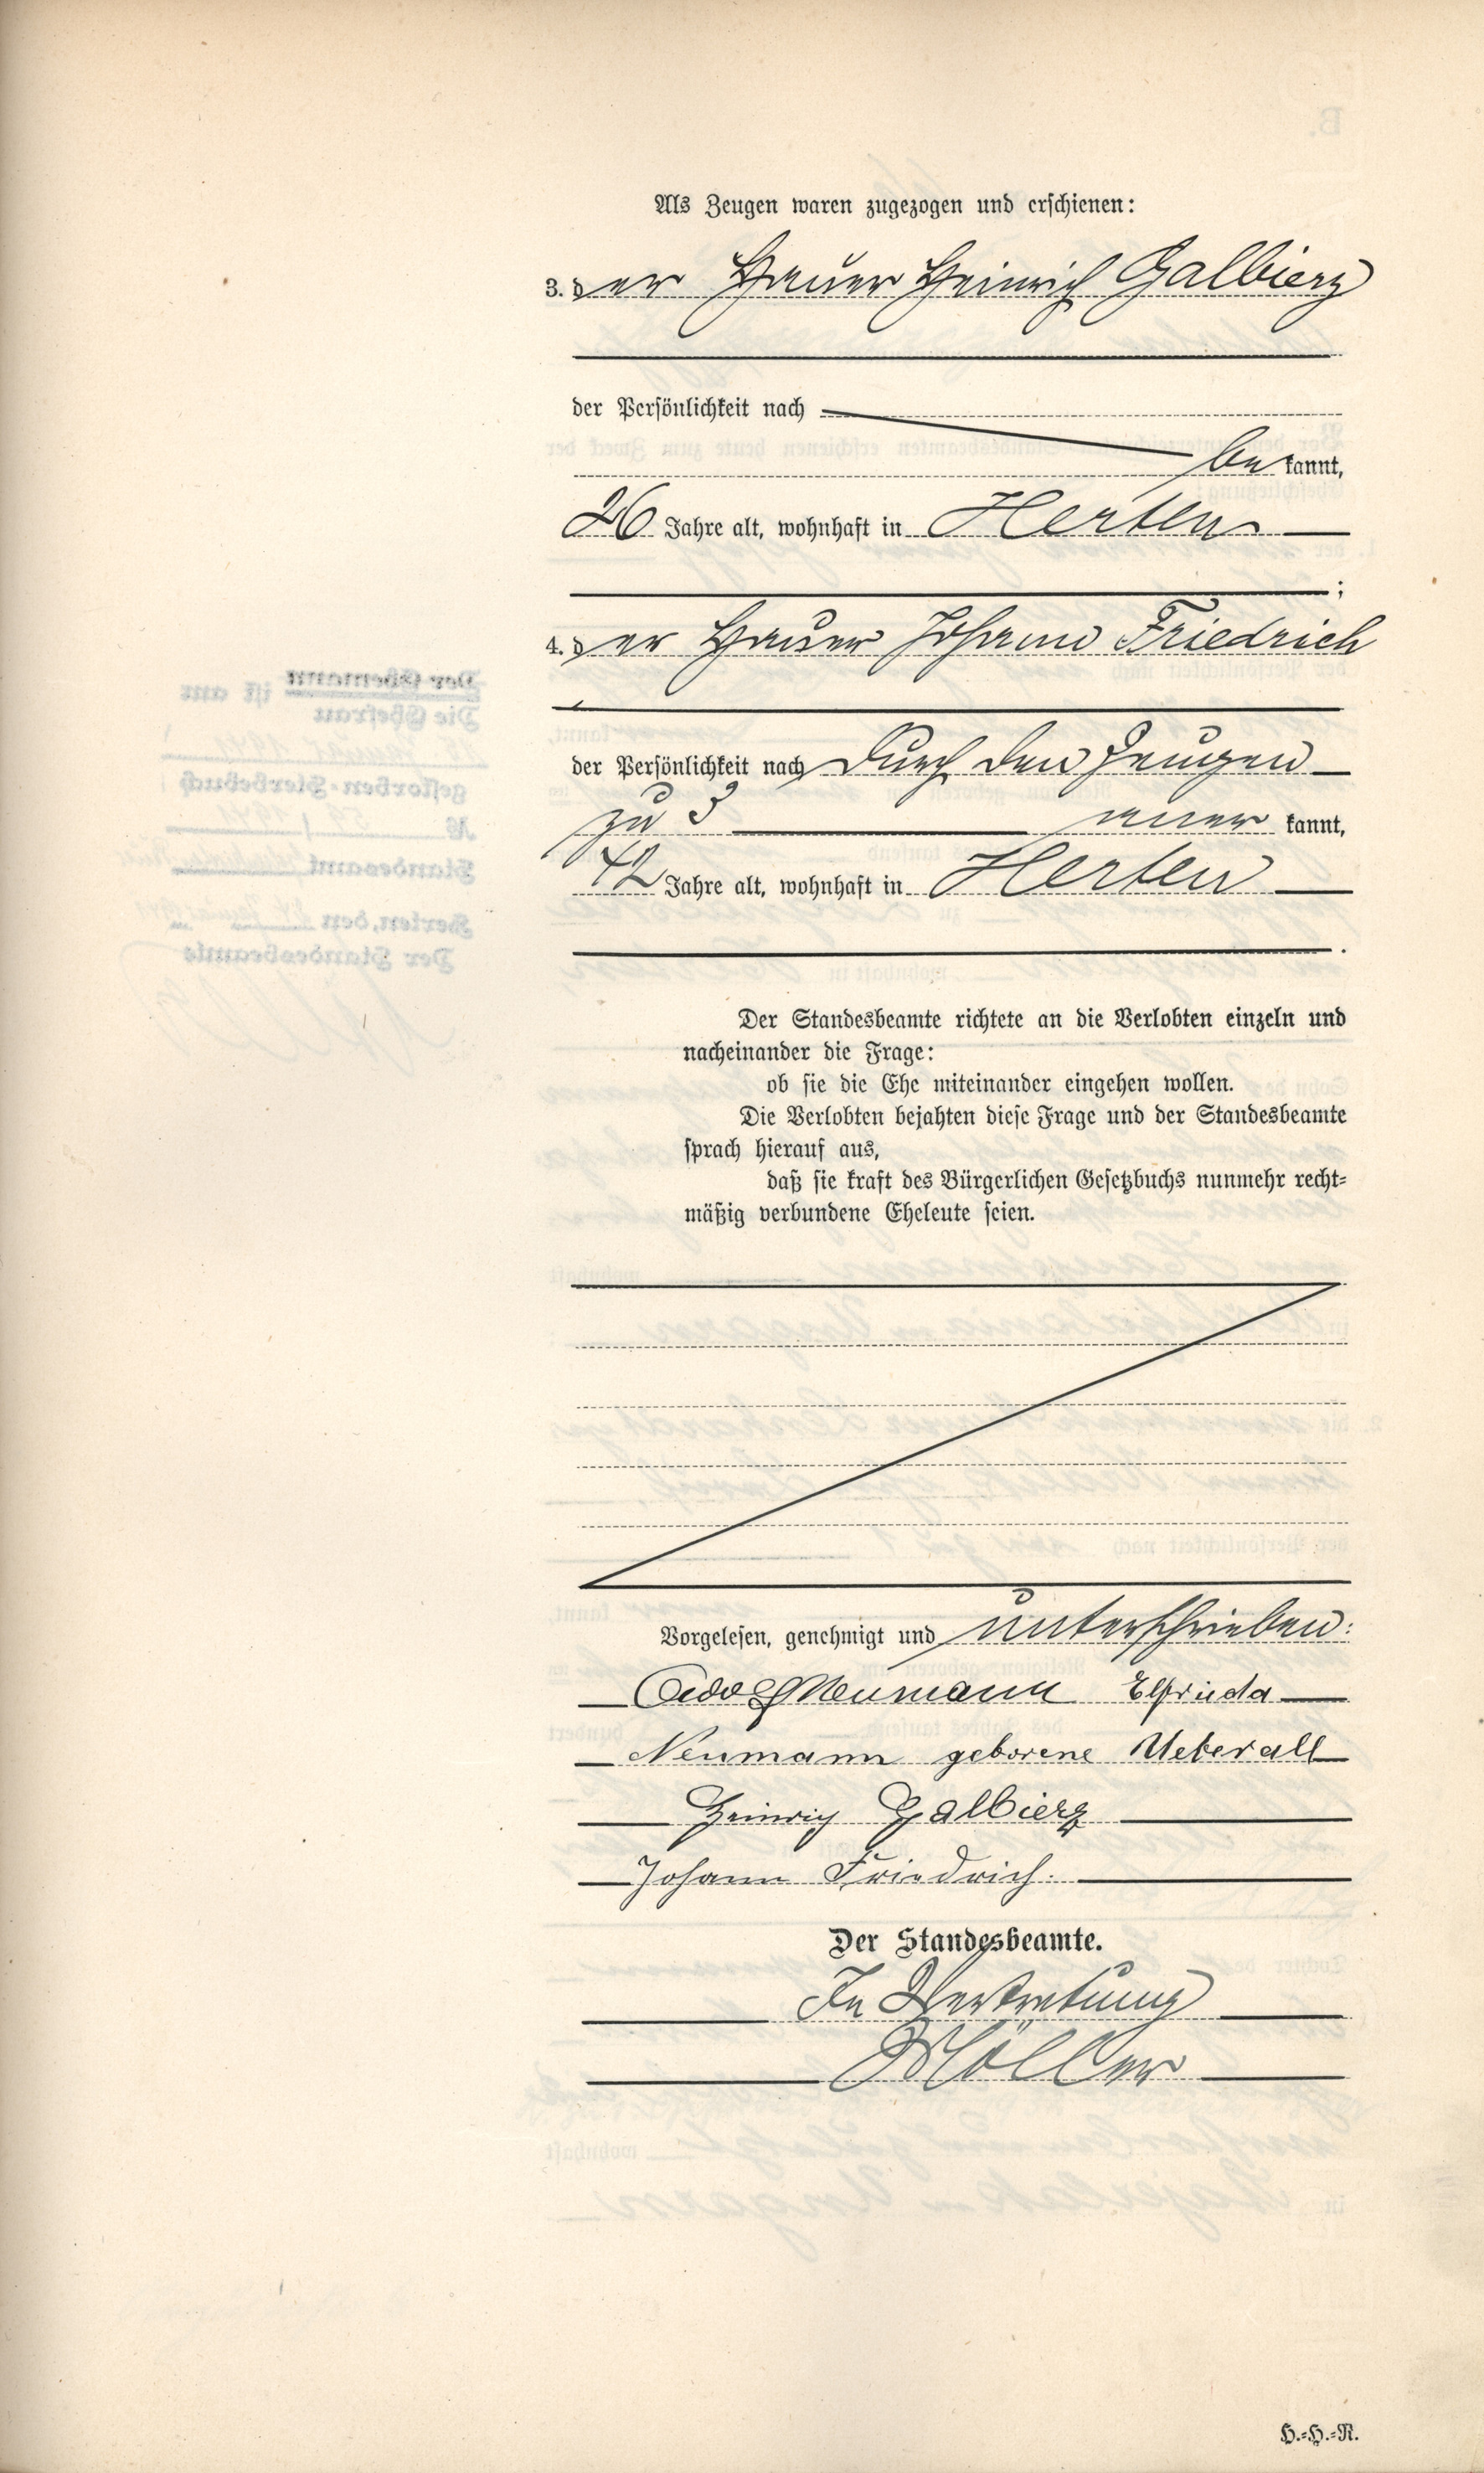 Als Zeugen waren zugezogen und erschienen:
3. der Hauer Heinrich Galbierz
der Persönlichkeit nach
bekannt,
26 Jahre alt, wohnhaft in Herten
;
4. der Hauer Johann Friedrich
der Persönlichkeit nach durch den Zeugen
zu 3 anerkannt,
42 Jahre alt, wohnhaft in Herten
.
Der Standesbeamte richtete an die Verlobten einzeln und
nacheinander die Frage:
ob sie die Ehe miteinander eingehen wollen.
Die Verlobten bejahten diese Frage und der Standesbeamte
sprach hierauf aus,
daß sie kraft des Bürgerlichen Gesetzbuchs nunmehr recht-
mäßig verbundene Eheleute seien.
Vorgelesen, genehmigt und unterschrieben:
Adolf Neumann Elfrieda
Neumann geborene Ueberall
Heinrich Galbierz
Johann Friedrich.
Der Standesbeamte.
In Vertretung
Möller
H.-H.-R.